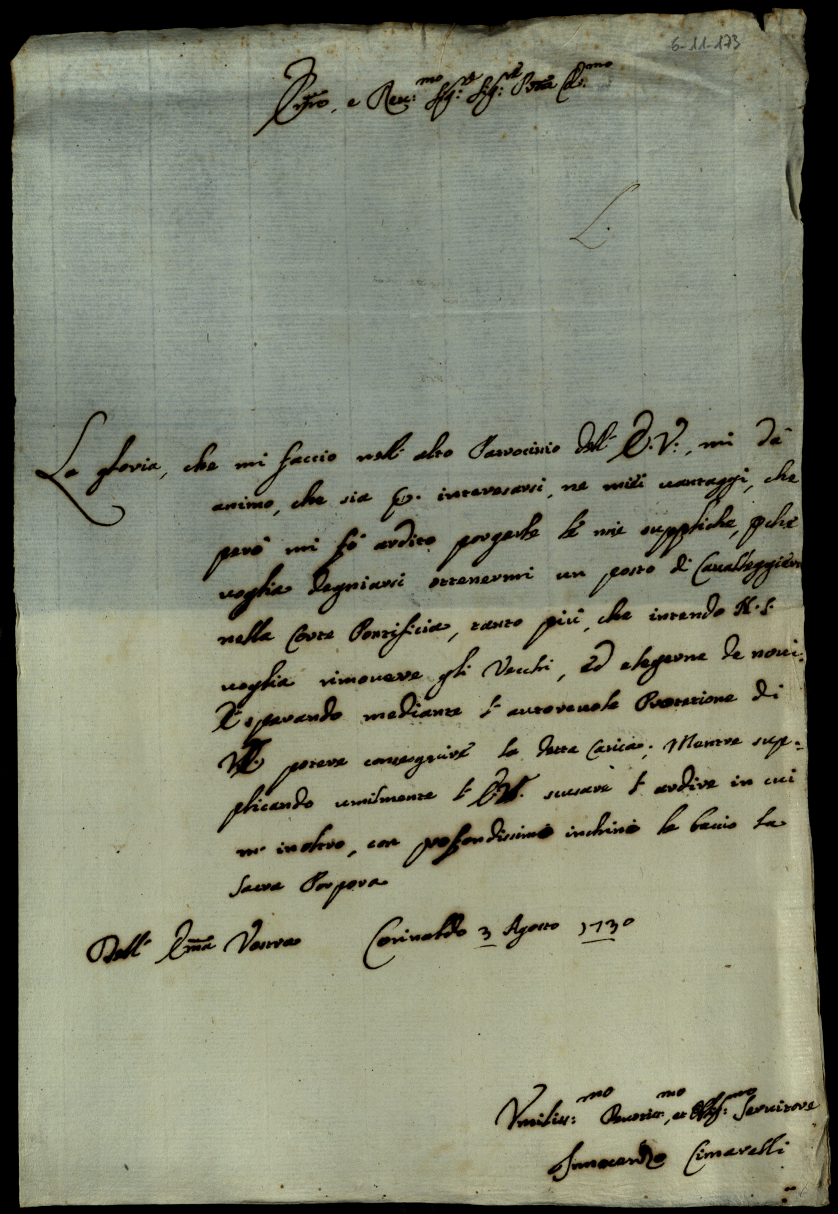 6-11-173
Em͞o, e Reu:mo Sig:re Sig:re P͞ron Col:mo
L.
La gloria, che mi faccio nell' alto Patrocinio dell' E. V:, mi dà
animo, che sia p. interesarsi, ne miei uantaggi, che
però mi fò ardito porgerle le mie suppliche, pche
voglia degniarsi ottenermi un posto di Caualleggiero
nella Corte Pontificia, tanto più, che intendo N. S.
uoglia rimouere gli Vecchi, ed elegerne de noui:
E sperando mediante l' autoreuole Protetione di
VE potere conseguire la detta Carica; Mentre sup=
plicando umilmente l' E. V. scusare l' ardire in cui
m' inoltro, con profondissimo inchino le bacio la
Sacra Porpora
Dell' Em͞a Vostra Corinaldo 3 Agosto 1730
Vmiliss:mo Deuotiss:mo, et Oblig:mo Seruitore
Innocenzo Cimarelli